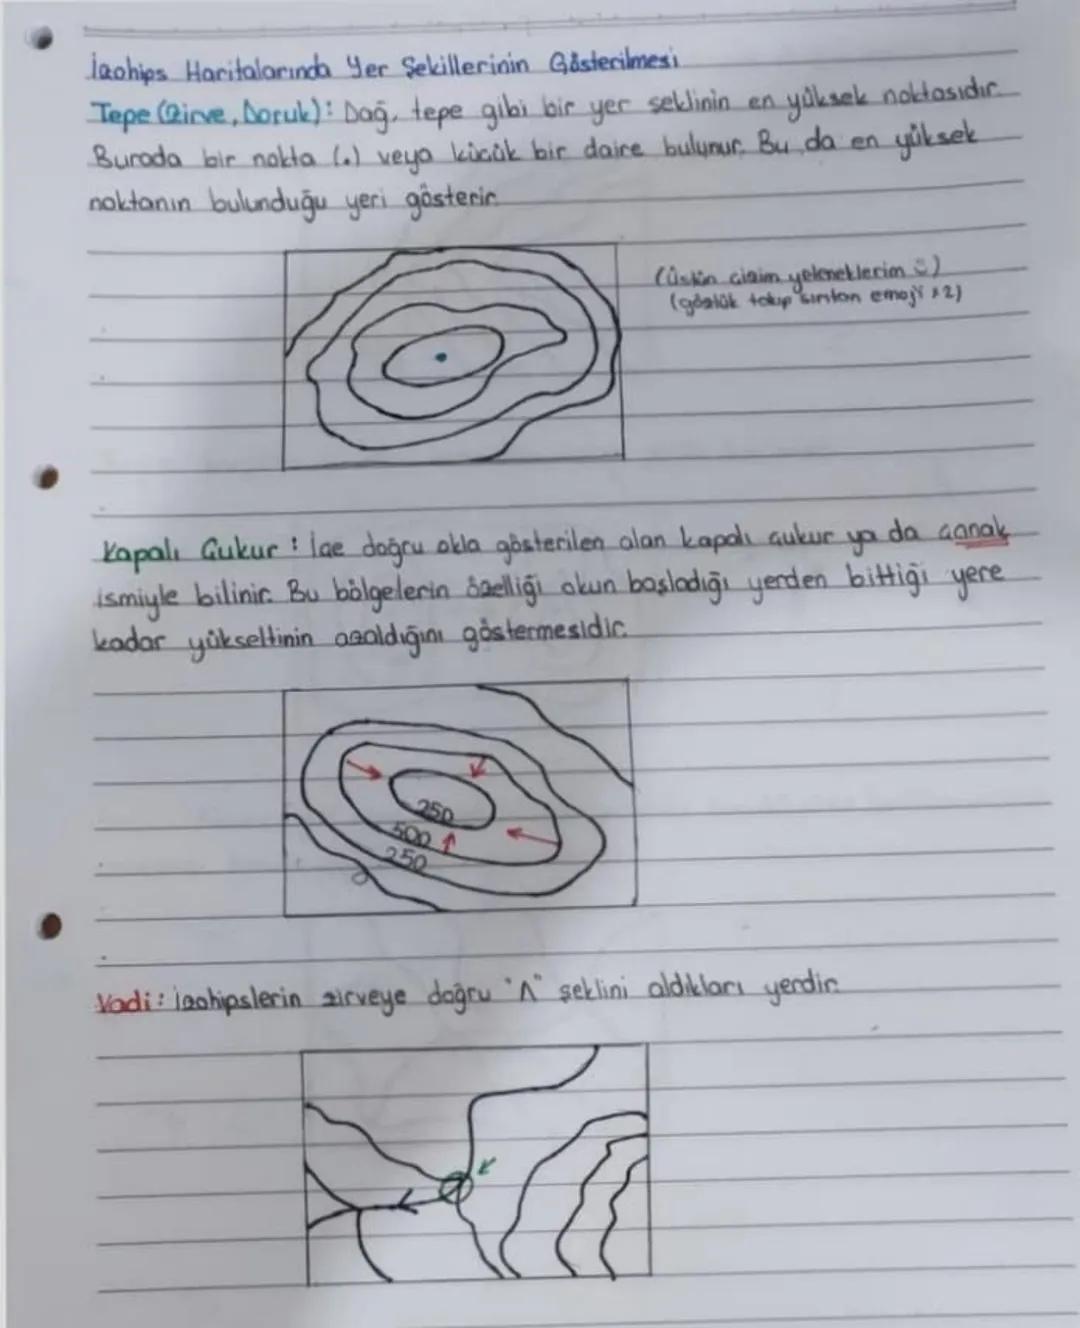 İzohips Haritalarında Yer Şekillerinin Gösterilmesi
Tepe (Zirve, Doruk): Dağ, tepe gibi bir yer şeklinin en yüksek noktasıdır.
Burada bir nokta (.) veya küçük bir daire bulunur. Bu da en yüksek
noktanın bulunduğu yeri gösterir.
(üstün çizim yeteneklerim :)
(gözlük takıp sırıtan emoji x2)
Kapalı Çukur : İçe doğru okla gösterilen alan kapalı çukur ya da çanak
ismiyle bilinir. Bu bölgelerin özelliği okun başladığı yerden bittiği yere
kadar yükseltinin azaldığını göstermesidir.
250
500
250
Vadi : İzohipslerin zirveye doğru "Λ" şeklini aldıkları yerdir.